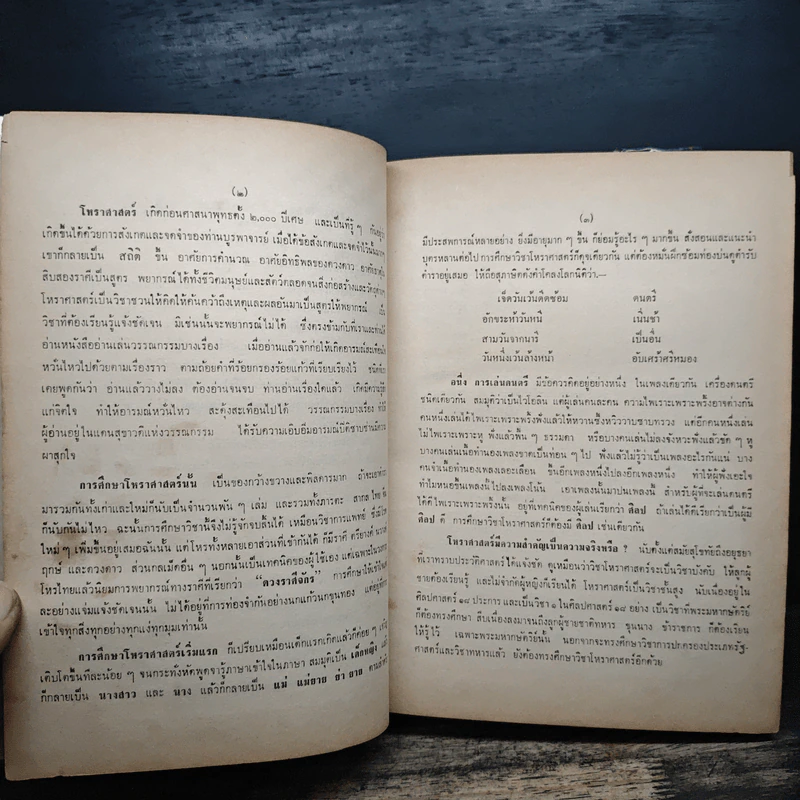 (๒)
โหราศาสตร์ เกิดก่อนศาสนาพุทธตั้ง ๒,๐๐๐ ปีเศษ และเป็นที่รู้ๆ
เกิดขึ้นได้ด้วยการสังเกตและจดจำของท่านบูรพาจารย์ เมื่อได้ข้อสังเกตและจดจำไว้
เขาก็กลายเป็น สถิติ ขึ้น อาศัยการคำนวณ อาศัยอิทธิพลของดวงดาว
สิบสองราศีเป็นสูตร พยากรณ์ได้ทั้งชีวิตมนุษย์และสัตว์ตลอดจนสิ่งก่อสร้างและวัตถุ
โหราศาสตร์เป็นวิชาชวนให้คิดให้ค้นคว้าถึงเหตุและผลอันมาเป็นสูตรให้พยากรณ์
วิชาที่ต้องเรียนรู้แจ้งชัดเจน มิเช่นนั้นจะพยากรณ์ไม่ได้ ซึ่งตรงข้ามกับที่เราและท่าน
อ่านหนังสืออ่านเล่นวรรณกรรมบางเรื่อง เมื่ออ่านแล้วจักก่อให้เกิดอารมณ์สะเทือน
หวั่นไหวไปด้วยตามเรื่องราว ตามถ้อยคำที่ร้อยกรองร้อยแก้วที่เรียบเรียงไว้
เคยพูดกันว่า อ่านแล้ววางไม่ลง ต้องอ่านเจนจบ ท่านอ่านเรื่องใดแล้ว
แก่จิตใจ ทำให้อารมณ์หวั่นไหว สะดุ้งสะเทือนไปได้ วรรณกรรมบางเรื่อง
ผู้อ่านอยู่ในแดนสุขาวดีแห่งวรรณกรรม ได้รับความเอิบอิ่มอารมณ์ปิติซาบซ่าน
ผาสุกใจ
การศึกษาโหราศาสตร์นั้น เป็นของกว้างขวางและพิสดารมาก ถ้าจะเอา
มารวมกันทั้งเก่าและใหม่ก็นับเป็นจำนวนพัน ๆ เล่ม และรวมทั้งภารตะ สากล ไทย
ก็นับกันไม่ไหว ฉะนั้นการศึกษาวิชานี้จึงไม่รู้จักจบสิ้นได้ เหมือนวิชาการแพทย์
ใหม่ ๆ เพิ่มขึ้นอยู่เสมอฉันนั้น แต่โหรทั้งหลายเอาส่วนที่เข้ากันได้ ก็มีราศี ตรียางค์
ฤกษ์ และดวงดาว ส่วนกลเม็ดอื่น ๆ นอกนั้นเป็นเทคนิคของผู้ใช้เอง แต่เฉพาะในวงการ
โหรไทยแล้วนิยมการพยากรณ์ทางราศีที่เรียกว่า “ดวงราศีจักร” การศึกษาให้เข้าใจ
ละอย่างแจ่มแจ้งชัดเจนนั้น ไม่ได้อยู่ที่การท่องจำกันอย่างนกแก้วนกขุนทอง
เข้าใจทุกสิ่งทุกอย่างทุกแง่ทุกมุมเท่านั้น
การศึกษาโหราศาสตร์เริ่มแรก ก็เปรียบเหมือนเด็กแรกเกิดแล้วก็ค่อย ๆ
เติบโตขึ้นทีละน้อย ๆ จนกระทั่งหัดพูดจารู้ภาษาเข้าใจในภาษา สมมุติเป็น เด็กหญิง
ก็กลายเป็น นางสาว และ นาง แล้วก็กลายเป็น แม่ แม่ยาย ย่า ยาย
(๓)
มีประสพการณ์หลายอย่าง ยิ่งมีอายุมาก ๆ ขึ้น ก็ย่อมรู้อะไร ๆ มากขึ้น สั่งสอนและแนะนำ
บุตรหลานต่อไป การศึกษาวิชาโหราศาสตร์ก็ดุจเดียวกัน แต่ต้องหมั่นฝึกซ้อมท่องบ่นดูตำรับ
ตำราอยู่เสมอ ให้ถือสุภาษิตดังคำโคลงโลกนิติว่า,—
เจ็ดวันเว้นดีดซ้อม ดนตรี
อักขระห้าวันหนี เนิ่นช้า
สามวันจากนารี เป็นอื่น
วันหนึ่งเว้นล้างหน้า อับเศร้าศรีหมอง
อนึ่ง การเล่นดนตรี มีข้อควรคิดอยู่อย่างหนึ่ง ในเพลงเดียวกัน เครื่องดนตรี
ชนิดเดียวกัน สมมุติว่าเป็นไวโอลิน แต่ผู้เล่นคนละคน ความไพเราะเพราะพริ้งอาจต่างกัน
คนหนึ่งเล่นได้ไพเราะเพราะพริ้งฟังแล้วให้หวานซึ้งหวิววาบซาบทรวง แต่อีกคนหนึ่งเล่น
ไม่ไพเราะเพราะหู ฟังแล้วพื้น ๆ ธรรมดา หรือบางคนเล่นไม่ลงจังหวะฟังแล้วขัด ๆ หู
บางคนเล่นเนื้อทำนองเพลงขาดเป็นท่อน ๆ ไป ฟังแล้วไม่รู้ว่าเป็นเพลงอะไรกันแน่ บาง
คนจำเนื้อทำนองเพลงเลอะเลือน ขึ้นอีกเพลงหนึ่งไปลงอีกเพลงหนึ่ง ทำให้ผู้ฟังเอะใจ
ทำไมหนอขึ้นเพลงนี้ไปลงเพลงโน้น เอาเพลงนั้นมาปนเพลงนี้ สำหรับผู้ที่จะเล่นดนตรี
ได้ดีไพเราะเพราะพริ้งนั้น อยู่ที่เทคนิคของผู้เล่นเรียกว่า ศิลป ถ้าเล่นได้ดีเรียกว่าเป็นผู้มี
ศิลป ดี การศึกษาวิชาโหราศาสตร์ก็ต้องมี ศิลป เช่นเดียวกัน
โหราศาสตร์มีความสำคัญเป็นความจริงหรือ ? นับตั้งแต่สมัยสุโขทัยถึงอยุธยา
ที่เราทราบประวัติศาสตร์ ได้แจ้งชัด ดูเหมือนว่าวิชาโหราศาสตร์ก็จะเป็นวิชาบังคับ ให้ลูกผู้
ชายต้องเรียนรู้ และไม่จำกัดผู้หญิงก็เรียนได้ โหราศาสตร์เป็นวิชาชั้นสูง นับเนื่องอยู่ใน
ศิลปศาสตร์ ๑๘ ประการ และเป็นวิชา ๑ ในศิลปศาสตร์ ๑๘ อย่าง เป็นวิชาที่พระมหากษัตริย์
ก็ต้องทรงศึกษา สืบเนื่องลงมาจนถึงลูกผู้ชายชาติทหาร ขุนนาง ข้าราชการ ก็ต้องเรียน
ให้รู้ไว้ เฉพาะพระมหากษัตริย์นั้น นอกจากจะทรงศึกษาวิชาการปกครองประเภทรัฐ-
ศาสตร์และวิชาทหารแล้ว ยังต้องทรงศึกษาวิชาโหราศาสตร์อีกด้วย